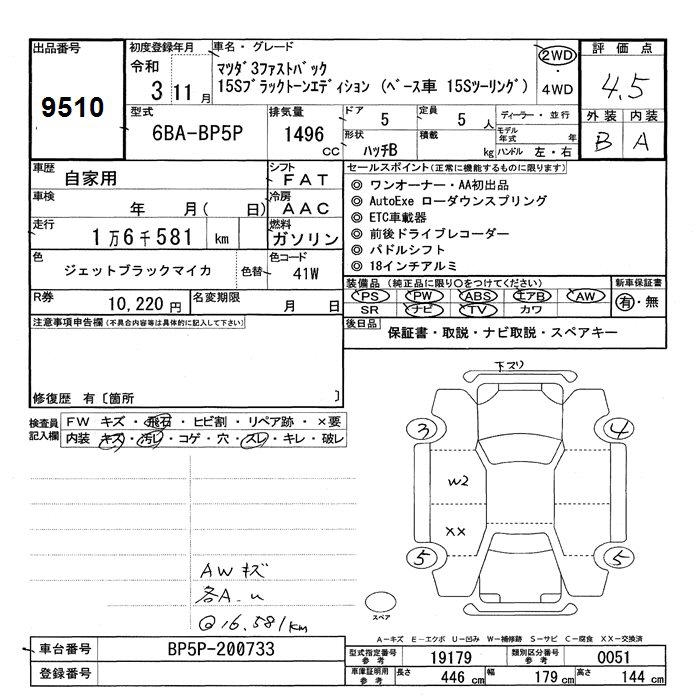 出品番号
9510
初度登録年月
令和
3 11 月
車名・グレード
マツダ3ファストバック
15Sブラックトーンエディション (ベース車 15Sツーリング)
2WD
4WD
評価点
4.5
外装 内装
B A
型式
6BA-BP5P
排気量
1496
cc
ドア
5
定員
5 人
形状
ハッチB
積載
kg
ディーラー・並行
モデル年式 年
ハンドル 左・右
車歴
自家用
シフト
FAT
車検
年 月( 日)
冷房
AAC
走行
1万6千581 km
燃料
ガソリン
色
ジェットブラックマイカ
色替
色コード
41W
R券
10,220 円
名変期限
月 日
セールスポイント(正常に機能するものに限ります)
◎ ワンオーナー・AA初出品
◎ AutoExe ローダウンスプリング
◎ ETC車載器
◎ 前後ドライブレコーダー
◎ パドルシフト
◎ 18インチアルミ
装備品 (純正品に限り○をつけてください)
PS PW ABS エアB AW
SR ナビ TV カワ
新車保証書
有・無
後日品
保証書・取説・ナビ取説・スペアキー
注意事項申告欄(不具合内容等は具体的に記入して下さい)
修復歴 有〔箇所 〕
検査員記入欄
FW キズ・飛石・ヒビ割・リペア跡・×要
内装 キズ・汚レ・コゲ・穴・スレ・キレ・破レ
AWキズ
各A-u
@16.581km
下スリ
3
4
W2
XX
5
5
スペア
A-キズ E-エクボ U-凹み W-補修跡 S-サビ C-腐食 XX-交換済
車台番号
BP5P-200733
登録番号
型式指定番号 参考
19179
類別区分番号 参考
0051
車庫証明用 参考
長さ
446 cm
幅
179 cm
高さ
144 cm